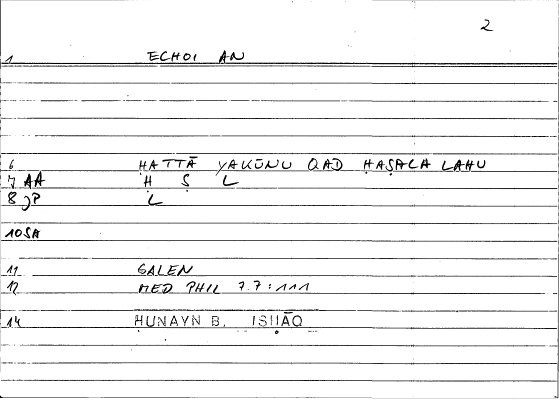 2
1 ECHOI AN
6 ḤATTĀ YAKŪNU QAD ḤAṢALA LAHU
7 AA Ḥ Ṣ L
8 JP L
10 SA
11 GALEN
12 MED PHIL 7.7:111
14 ḤUNAYN B. ISḤĀQ